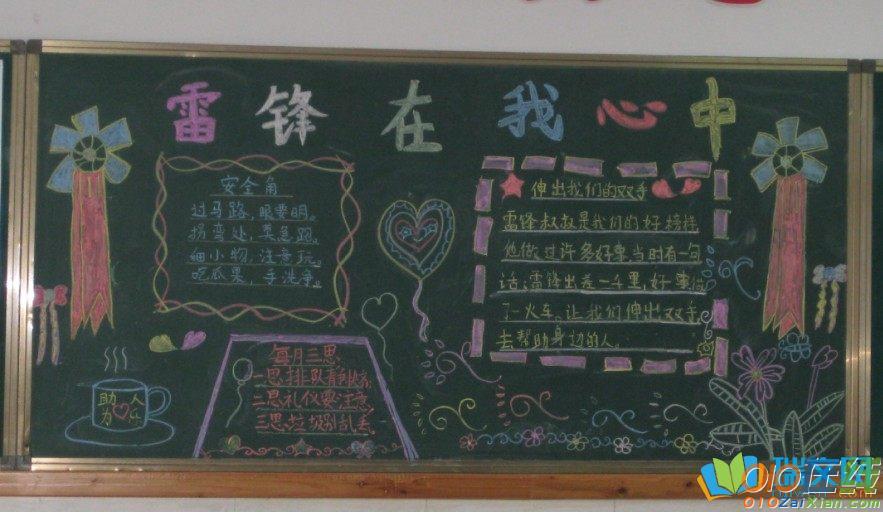 雷锋在我心中
安全角
过马路,眼要明。
拐弯处,莫急跑。
细小物,注意玩。
吃瓜果,手洗净。
伸出我们的双手
雷锋叔叔是我们的好榜样
他做过许多好事,当时有一句
话:雷锋出差一千里,好事做
了一火车。让我们伸出双手,
去帮助身边的人。
每月三思
一思排队静
二思礼仪要注意
三思垃圾别乱丢
助人
为乐
010在线
010ZaiXian.com